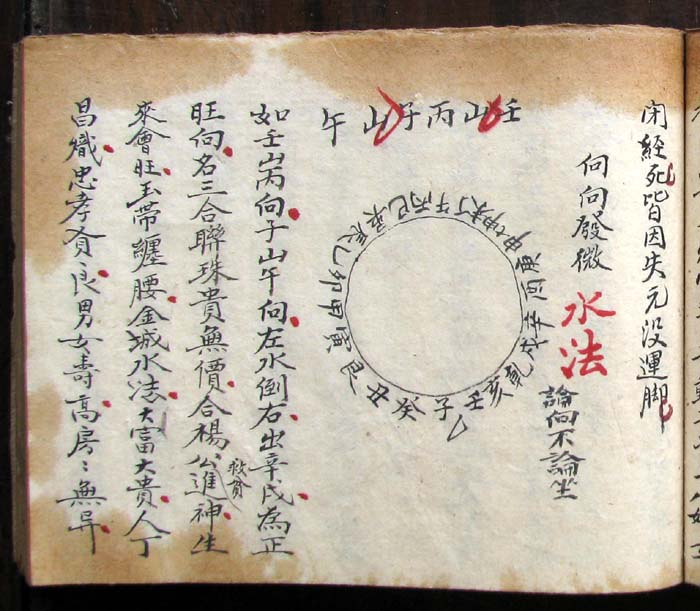 閉經死皆因失元没運脚
向向發微
水法
論向不論坐
壬山丙子山午
壬子癸丑艮寅甲卯乙辰巽巳丙午丁未坤申庚酉辛戌乾亥
如壬山丙向子山午向左水倒右出辛戌為正
旺向名三合聯珠貴無價合楊公救貧進神生
來會旺玉帶纏腰金城水法大富大貴人丁
昌熾忠孝賢良男女壽高房〻無异